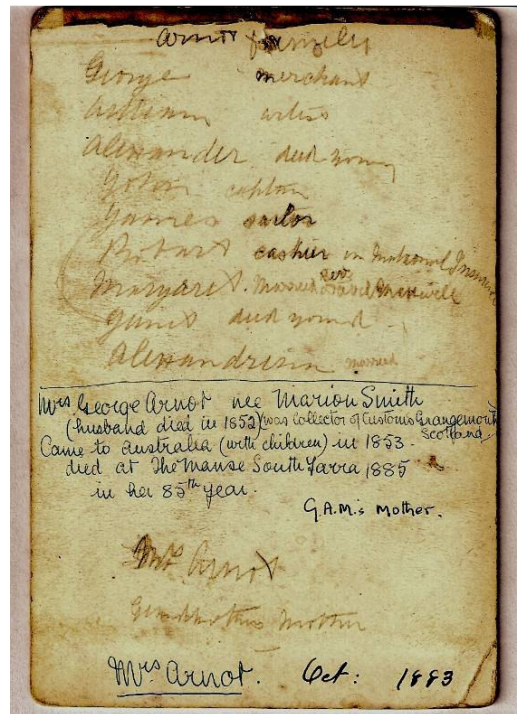 Arnot family
George merchant
William artist
Alexander died young
John captain
James sailor
Robert cashier in National Insurance
Margaret. Married Rev. David Maxwell
died young.
Alexandrina married
Mrs George Arnot nee Marion Smith
(husband died in 1852) (was Collector of Customs Grangemouth
Scotland
Came to Australia (with children) in 1853.
died at The Manse South Yarra 1885
in her 85th year.
G.A.M.'s Mother.
Mrs Arnot
Grandmothers Mother
Mrs Arnot. Oct: 1883